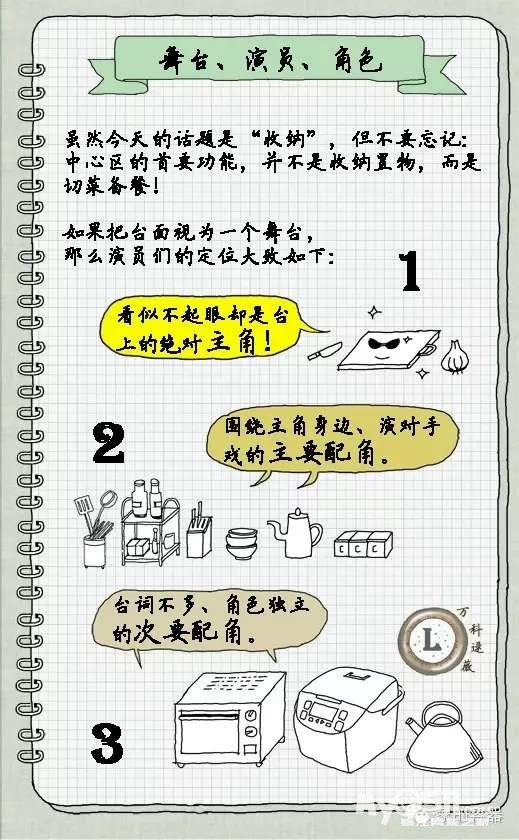 舞台、演员、角色
虽然今天的话题是“收纳”，但不要忘记：
中心区的首要功能，并不是收纳置物，而是
切菜备餐！
如果把台面视为一个舞台，
那么演员们的定位大致如下：
1
看似不起眼却是台
上的绝对主角！
2
围绕主角身边、演对手
戏的主要配角。
C C C
台词不多、角色独立
的次要配角。
L
万科速裁
3